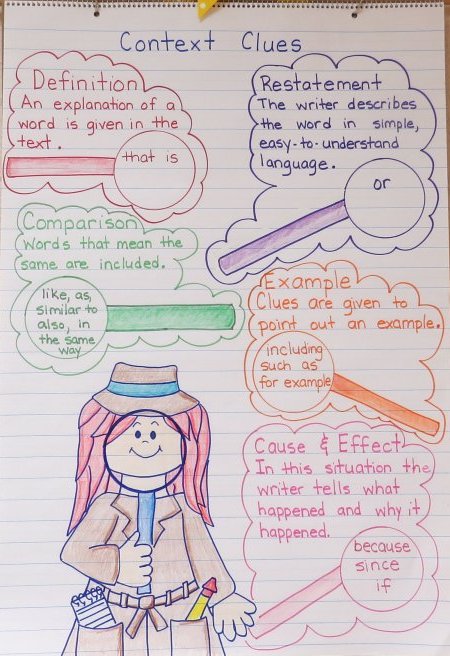 Context Clues
Definition
An explanation of a
word is given in the
text.
that is
Restatement
The writer describes
the word in simple,
easy-to-understand
language.
or
Comparison
Words that mean the
same are included.
like, as,
similar to
also, in
the same
way
Example
Clues are given to
point out an example.
including
such as
for example
Cause & Effect
In this situation the
writer tells what
happened and why it
happened.
because
since
if